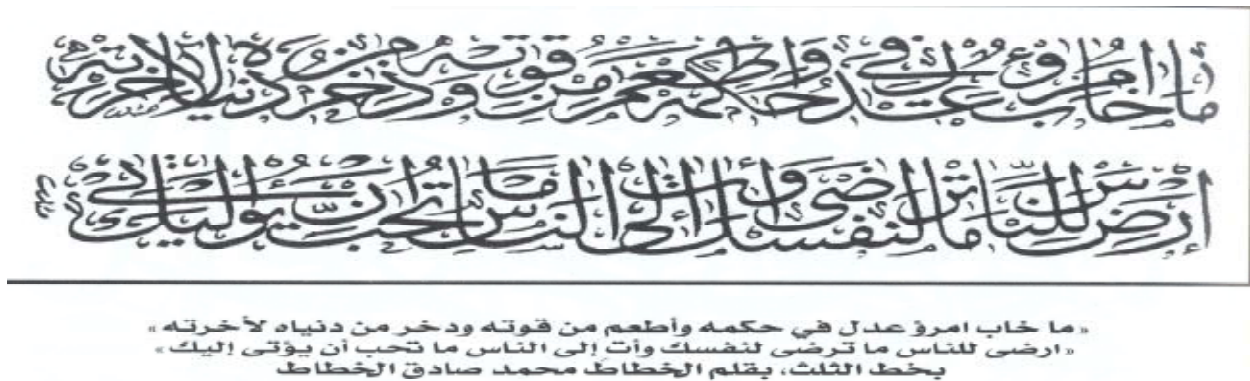 ما خاب امرؤ عدل في حكمه وأطعم من قوته وذخر من دنياه لآخرته
إرض للناس ما ترضى لنفسك وأت إلى الناس ما تحب أن يؤتى إليك
«ما خاب امرؤ عدل في حكمه وأطعم من قوته ودخر من دنياه لأخرته»
«ارضى للناس ما ترضى لنفسك وأت إلى الناس ما تحب أن يؤتى إليك»
بخط الثلث، بقلم الخطاط محمد صادق الخطاط